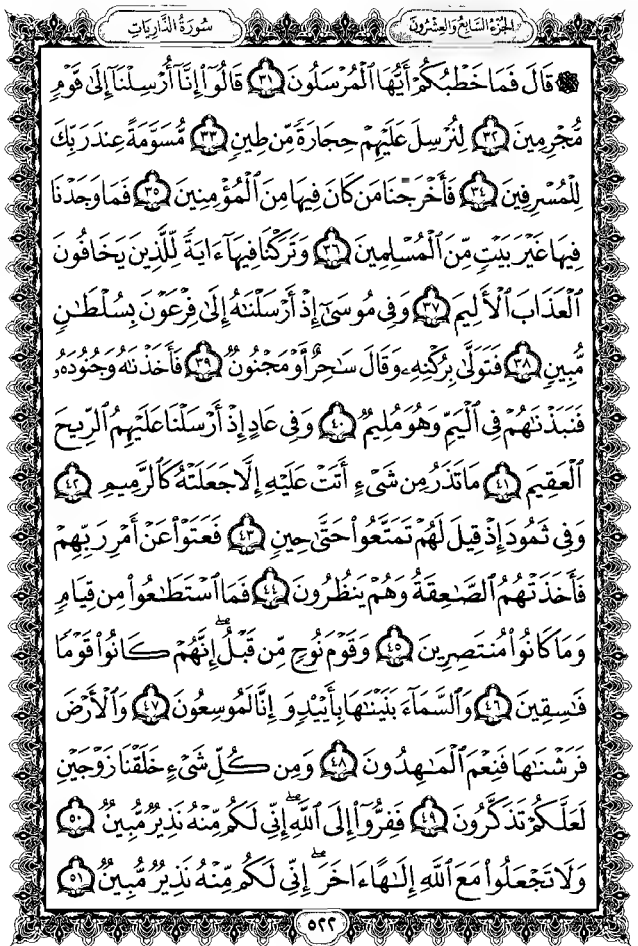 سُورَةُ الذَّارِيَاتِ
الجُزْءُ السَّابِعُ وَالعِشْرُونَ
۞ قَالَ فَمَا خَطْبُكُمْ أَيُّهَا ٱلْمُرْسَلُونَ ٣١ قَالُوٓا۟ إِنَّآ أُرْسِلْنَآ إِلَىٰ قَوْمٍ
مُّجْرِمِينَ ٣٢ لِنُرْسِلَ عَلَيْهِمْ حِجَارَةً مِّن طِينٍ ٣٣ مُّسَوَّمَةً عِندَ رَبِّكَ
لِلْمُسْرِفِينَ ٣٤ فَأَخْرَجْنَا مَن كَانَ فِيهَا مِنَ ٱلْمُؤْمِنِينَ ٣٥ فَمَا وَجَدْنَا
فِيهَا غَيْرَ بَيْتٍ مِّنَ ٱلْمُسْلِمِينَ ٣٦ وَتَرَكْنَا فِيهَآ ءَايَةً لِّلَّذِينَ يَخَافُونَ
ٱلْعَذَابَ ٱلْأَلِيمَ ٣٧ وَفِى مُوسَىٰٓ إِذْ أَرْسَلْنَٰهُ إِلَىٰ فِرْعَوْنَ بِسُلْطَٰنٍ
مُّبِينٍ ٣٨ فَتَوَلَّىٰ بِرُكْنِهِۦ وَقَالَ سَٰحِرٌ أَوْ مَجْنُونٌ ٣٩ فَأَخَذْنَٰهُ وَجُنُودَهُۥ
فَنَبَذْنَٰهُمْ فِى ٱلْيَمِّ وَهُوَ مُلِيمٌ ٤٠ وَفِى عَادٍ إِذْ أَرْسَلْنَا عَلَيْهِمُ ٱلرِّيحَ
ٱلْعَقِيمَ ٤١ مَا تَذَرُ مِن شَىْءٍ أَتَتْ عَلَيْهِ إِلَّا جَعَلَتْهُ كَٱلرَّمِيمِ ٤٢
وَفِى ثَمُودَ إِذْ قِيلَ لَهُمْ تَمَتَّعُوا۟ حَتَّىٰ حِينٍ ٤٣ فَعَتَوْا۟ عَنْ أَمْرِ رَبِّهِمْ
فَأَخَذَتْهُمُ ٱلصَّٰعِقَةُ وَهُمْ يَنظُرُونَ ٤٤ فَمَا ٱسْتَطَٰعُوا۟ مِن قِيَامٍ
وَمَا كَانُوا۟ مُنتَصِرِينَ ٤٥ وَقَوْمَ نُوحٍ مِّن قَبْلُ ۖ إِنَّهُمْ كَانُوا۟ قَوْمًا
فَٰسِقِينَ ٤٦ وَٱلسَّمَآءَ بَنَيْنَٰهَا بِأَيْي۟دٍ وَإِنَّا لَمُوسِعُونَ ٤٧ وَٱلْأَرْضَ
فَرَشْنَٰهَا فَنِعْمَ ٱلْمَٰهِدُونَ ٤٨ وَمِن كُلِّ شَىْءٍ خَلَقْنَا زَوْجَيْنِ
لَعَلَّكُمْ تَذَكَّرُونَ ٤٩ فَفِرُّوٓا۟ إِلَى ٱللَّهِ ۖ إِنِّى لَكُم مِّنْهُ نَذِيرٌ مُّبِينٌ ٥٠
وَلَا تَجْعَلُوا۟ مَعَ ٱللَّهِ إِلَٰهًا ءَاخَرَ ۖ إِنِّى لَكُم مِّنْهُ نَذِيرٌ مُّبِينٌ ٥١
٥٢٢